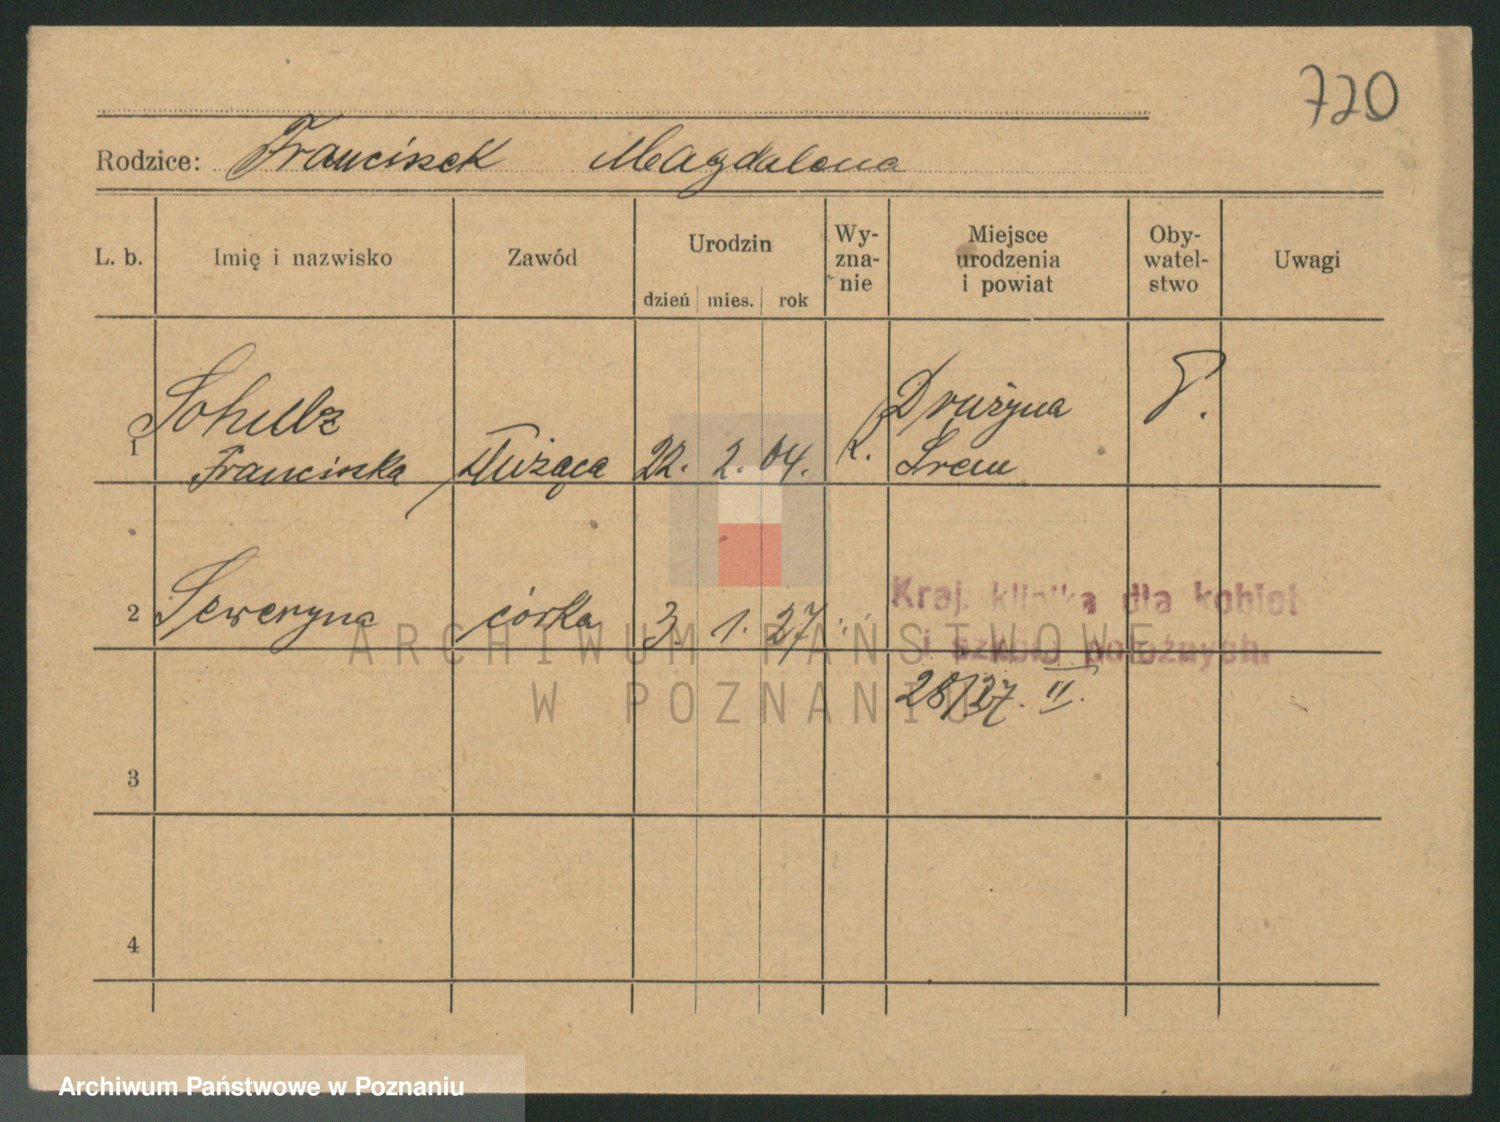 720
Rodzice: Franciszek Magdalena
L. b. Imię i nazwisko Zawód Urodzin dzień mies. rok Wy-zna-nie Miejsce urodzenia i powiat Oby-watel-stwo Uwagi
1 Schulz Franciszka służąca 22. 2. 04. k. Drużyna Śrem P.
2 Seweryna córka 3. 1. 27
Kraj. klinika dla kobiet
i szkoła położnych.
28/27. II.
3
4
ARCHIWUM PAŃSTWOWE
W POZNANIU
Archiwum Państwowe w Poznaniu